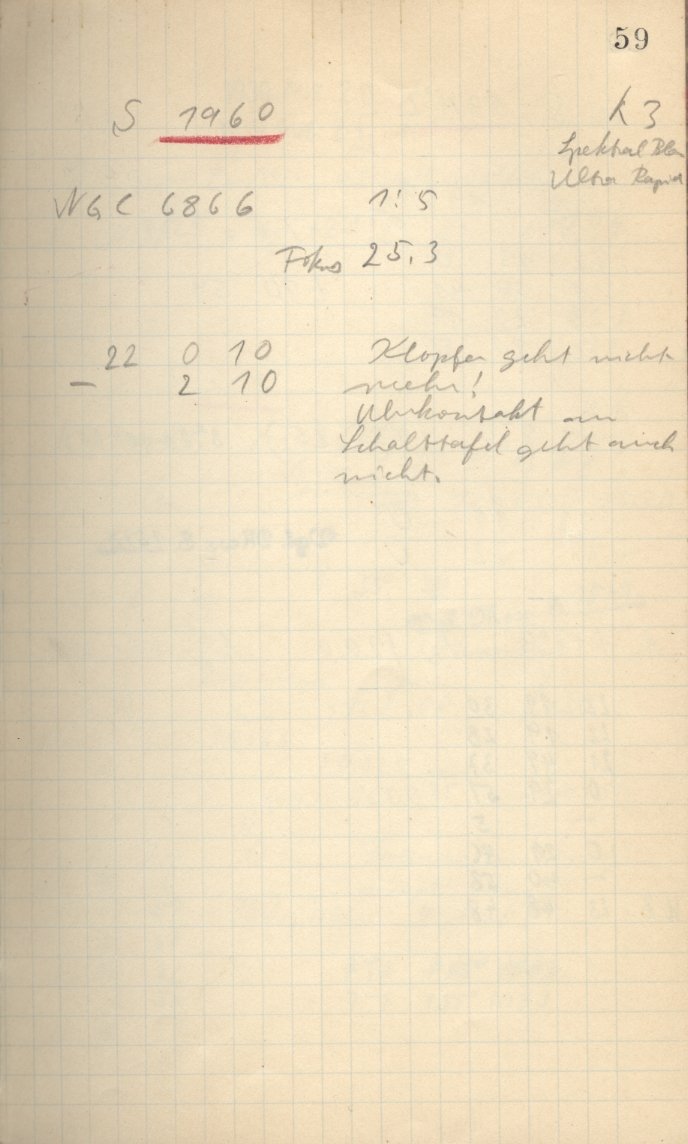 59
S 1960
K 3
Spektral Blau
Ultra Rapid
NGC 6866 1:5
Fokus 25.3
22 0 10 Klopfer geht nicht
– 2 10 mehr!
Uhrkontakt an
Schalttafel geht auch
nicht.